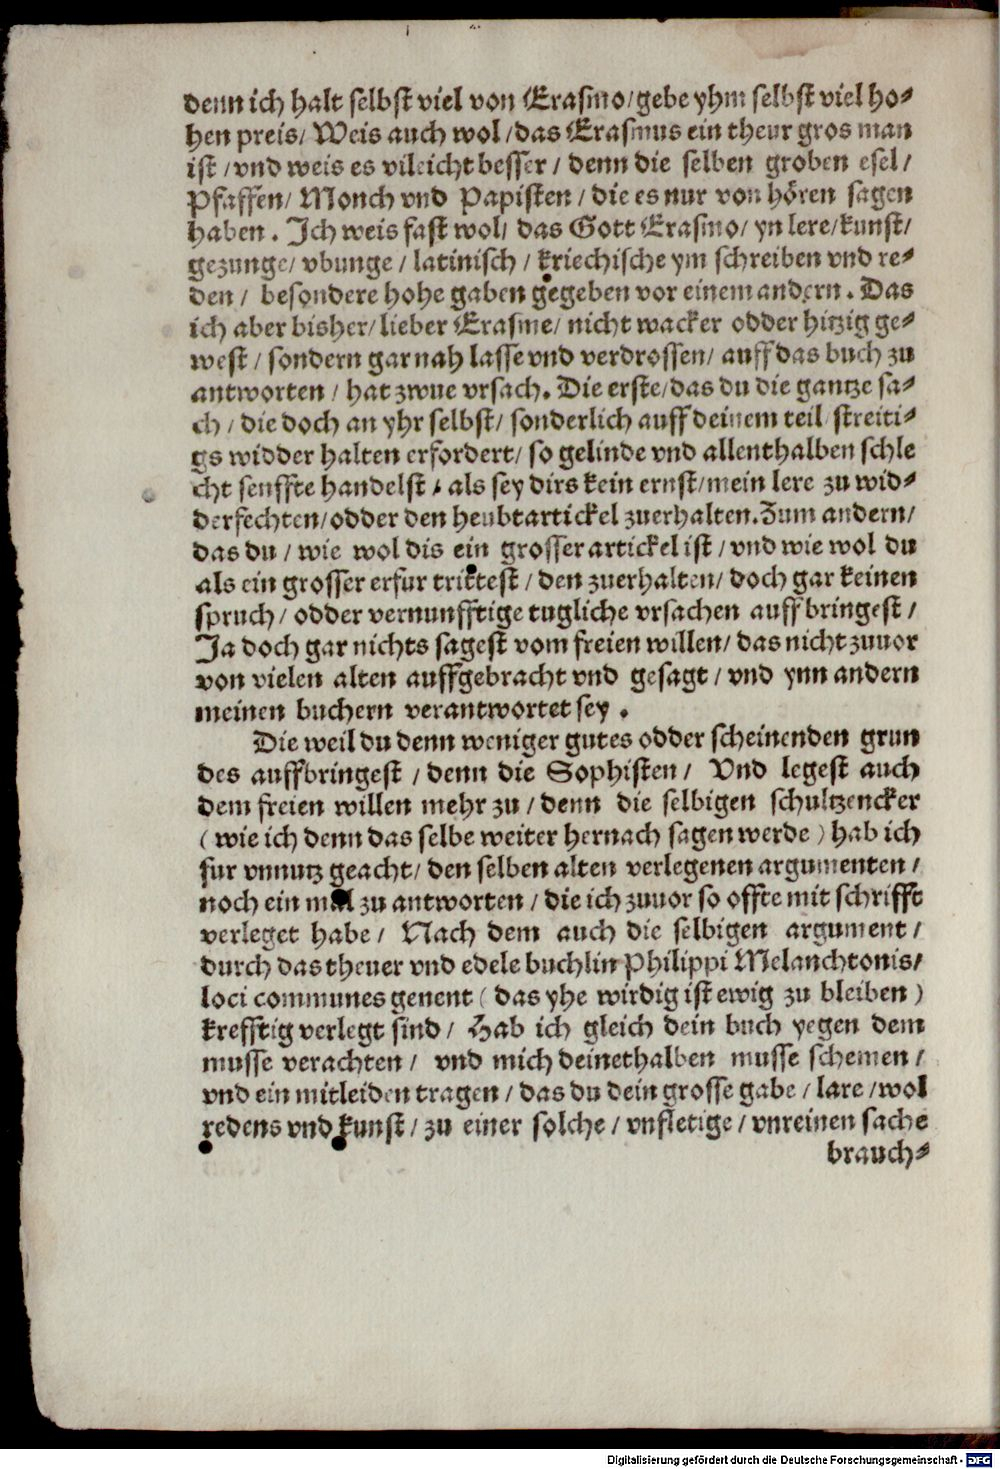 denn ich halt selbst viel von Erasmo/gebe yhm selbst viel ho⸗
hen preis/ Weis auch wol/das Erasmus ein theur gros man
ist/vnd weis es vileicht besser/denn die selben groben esel/
Pfaffen/ Monch vnd Papisten/die es nur von hören sagen
haben. Ich weis fast wol/ das Gott Erasmo/ yn lere/kunst/
gezunge/ vbunge/latinisch/kriechische ym schreiben vnd re⸗
den/ besondere hohe gaben gegeben vor einem andern. Das
ich aber bisher/lieber Erasme/nicht wacker odder hitzig ge⸗
west/sondern gar nah lasse vnd verdrossen/auff das buch zu
antworten/hat zwue vrsach. Die erste/das du die gantze sa⸗
ch/die doch an yhr selbst/sonderlich auff deinem teil streiti⸗
gs widder halten erfordert/so gelinde vnd allenthalben schle
cht senffte handelst/als sey dirs kein ernst/mein lere zu wid⸗
derfechten/odder den heubtartickel zuerhalten.Zum andern/
das du/wie wol dis ein grosser artickel ist/vnd wie wol du
als ein grosser erfur trittest/den zuerhalten/doch gar keinen
spruch/odder vernunfftige tugliche vrsachen auffbringest/
Ja doch gar nichts sagest vom freien willen/das nicht zuuor
von vielen alten auffgebracht vnd gesagt/vnd ynn andern
meinen buchern verantwortet sey.
Die weil du denn weniger gutes odder scheinenden grun
des auffbringest/denn die Sophisten/ Vnd legest auch
dem freien willen mehr zu/denn die selbigen schultzencker
(wie ich denn das selbe weiter hernach sagen werde) hab ich
fur vnnutz geacht/den selben alten verlegenen argumenten/
noch ein mal zu antworten/die ich zuuor so offte mit schrifft
verleget habe/ Nach dem auch die selbigen argument/
durch das theuer vnd edele buchlin Philippi Melanchtonis/
loci communes genent (das yhe wirdig ist ewig zu bleiben)
krefftig verlegt sind/ Hab ich gleich dein buch yegen dem
musse verachten/ vnd mich deinethalben musse schemen/
vnd ein mitleiden tragen/das du dein grosse gabe/lare/wol
redens vnd kunst/zu einer solche/vnfletige/vnreinen sache
brauch⸗
Digitalisierung gefördert durch die Deutsche Forschungsgemeinschaft - DFG